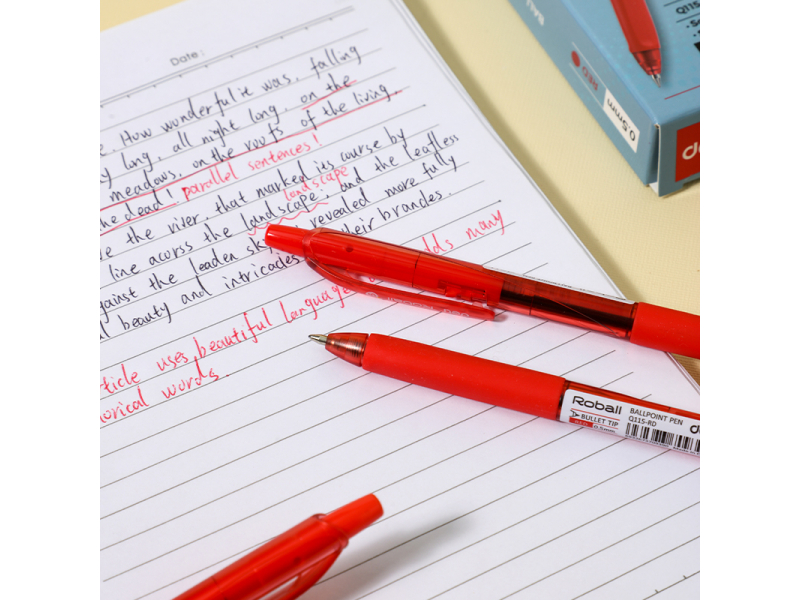 Date:
e. How wonderful it was, falling
y long, all night long, on the
meadows, on the roofs of the living
he dead! parallel sentences!
e the river, that marked its course by
landscape
line acorss the landscape; and the leafless
gainst the leaden sk revealed more fully
l beauty and intricacies their brancles.
dds many
ticle uses beautiful language
horical words.
Roball
BALLPOINT PEN
BULLET TIP
Q115-RD
RED 0.5mm
de
BALL
Q115
RED
0.5mm
de